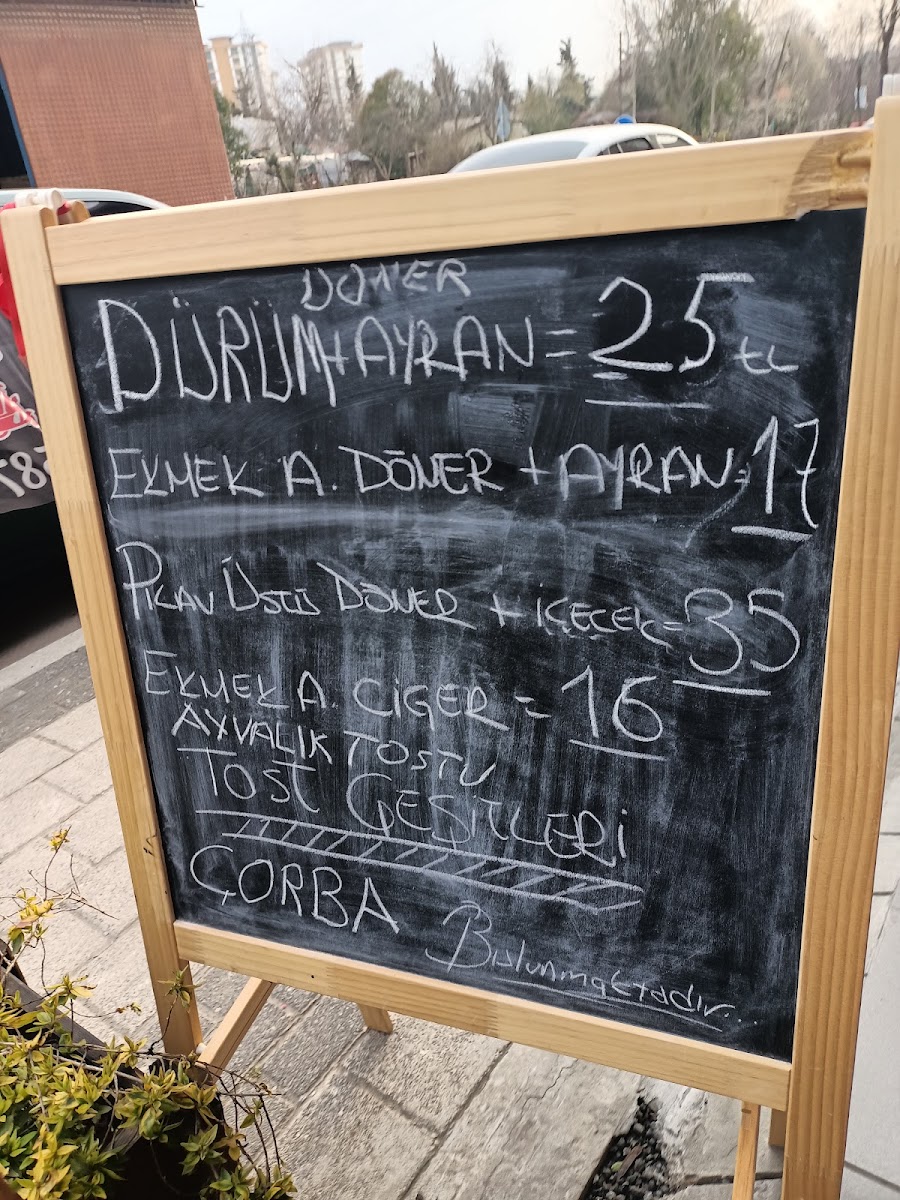 DÖNER
DÜRÜM+AYRAN = 25 TL
EKMEK A. DÖNER + AYRAN = 17
PİLAV ÜSTÜ DÖNER + İÇEÇEK = 35
EKMEK A. CİGER = 16
AYVALIK TOSTU
TOST ÇEŞİTLERİ
ÇORBA
Bulunmaktadır...